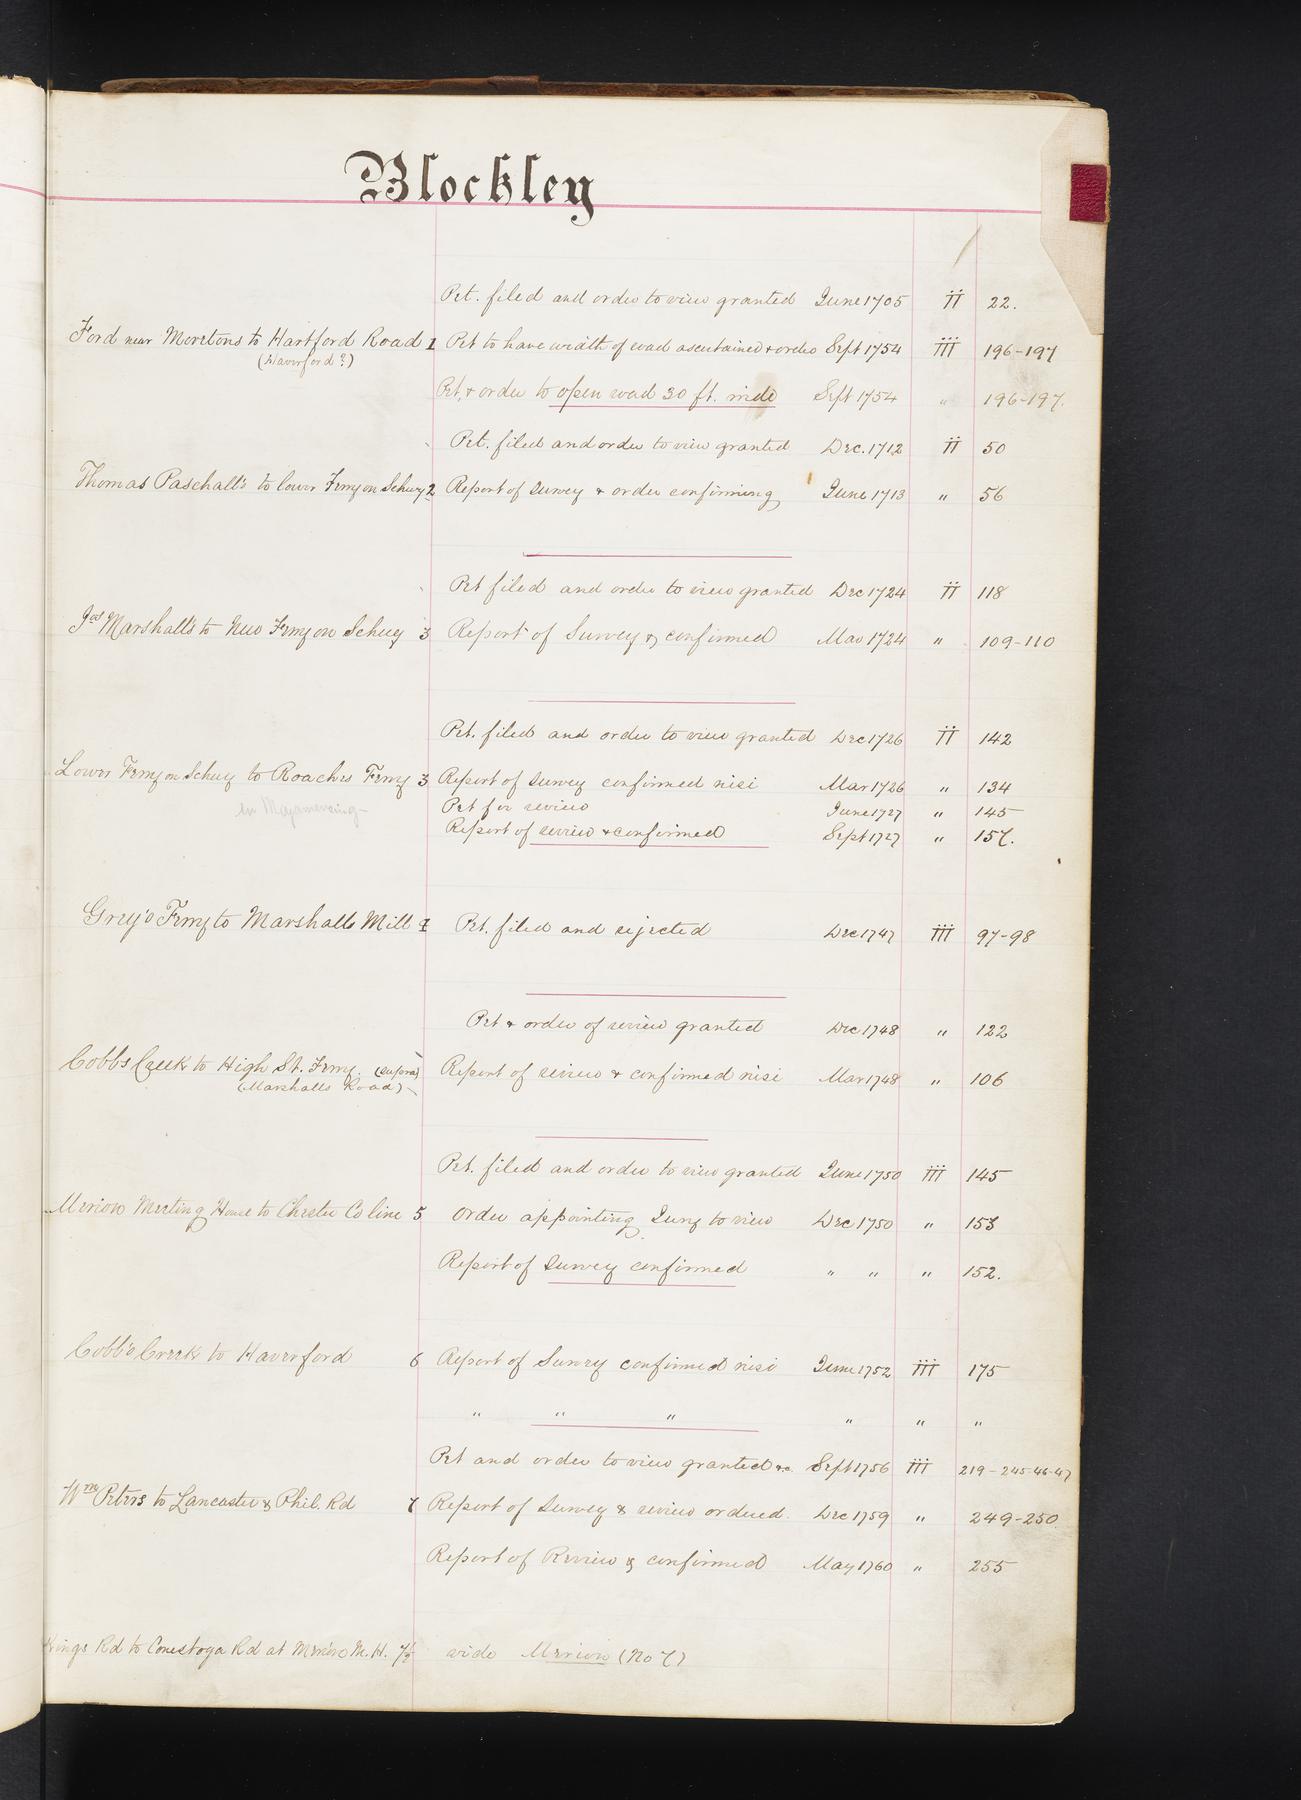 Blockley
Pet. filed and order to view granted June 1705 II 22.
Ford near Moretons to Hartford Road 1 Pet to have width of road ascertained & order Sept 1754 III 196-197
(Haverford?)
Pet. & order to open road 30 ft. wide Sept 1754 " 196-197.
Pet. filed and order to view granted Dec. 1712 II 50
Thomas Paschall's to lower Ferry on Schuy 2 Report of Survey & order confirming June 1713 " 56
Pet filed and order to view granted Dec 1724 II 118
Jos Marshall's to New Ferry on Schuy 3 Report of Survey & confirmed Mar 1724 " 109-110
Pet. filed and order to view granted Dec 1726 II 142
Lower Ferry on Schuy to Roaches Ferry 3 Report of Survey confirmed nisi Mar 1726 " 134
in Moyamensing Pet for review June 1727 " 145
Report of review & confirmed Sept 1727 " 157.
Grey's Ferry to Marshalls Mill 4 Pet. filed and rejected Dec 1747 III 97-98
Pet & order of review granted Dec 1748 " 122
Cobbs Creek to High St. Ferry. (supra) Report of review & confirmed nisi Mar 1748 " 106
(Marshalls Road)
Pet. filed and order to view granted June 1750 III 145
Merion Meeting House to Chester Co line 5 Order appointing Jury to view Dec 1750 " 153
Report of Survey confirmed " " " 152.
Cobb's Creek to Haverford 6 Report of Survey confirmed nisi June 1752 III 175
" " " " " "
Pet and order to view granted &c. Sept 1756 III 219-245-46-47
Wm Peters to Lancaster & Phil. Rd 7 Report of Survey & review ordered. Dec 1759 " 249-250.
Report of Review & confirmed May 1760 " 255
Kings Rd to Conestoga Rd at Merion M. H. 7½ vide Merion (No 7)